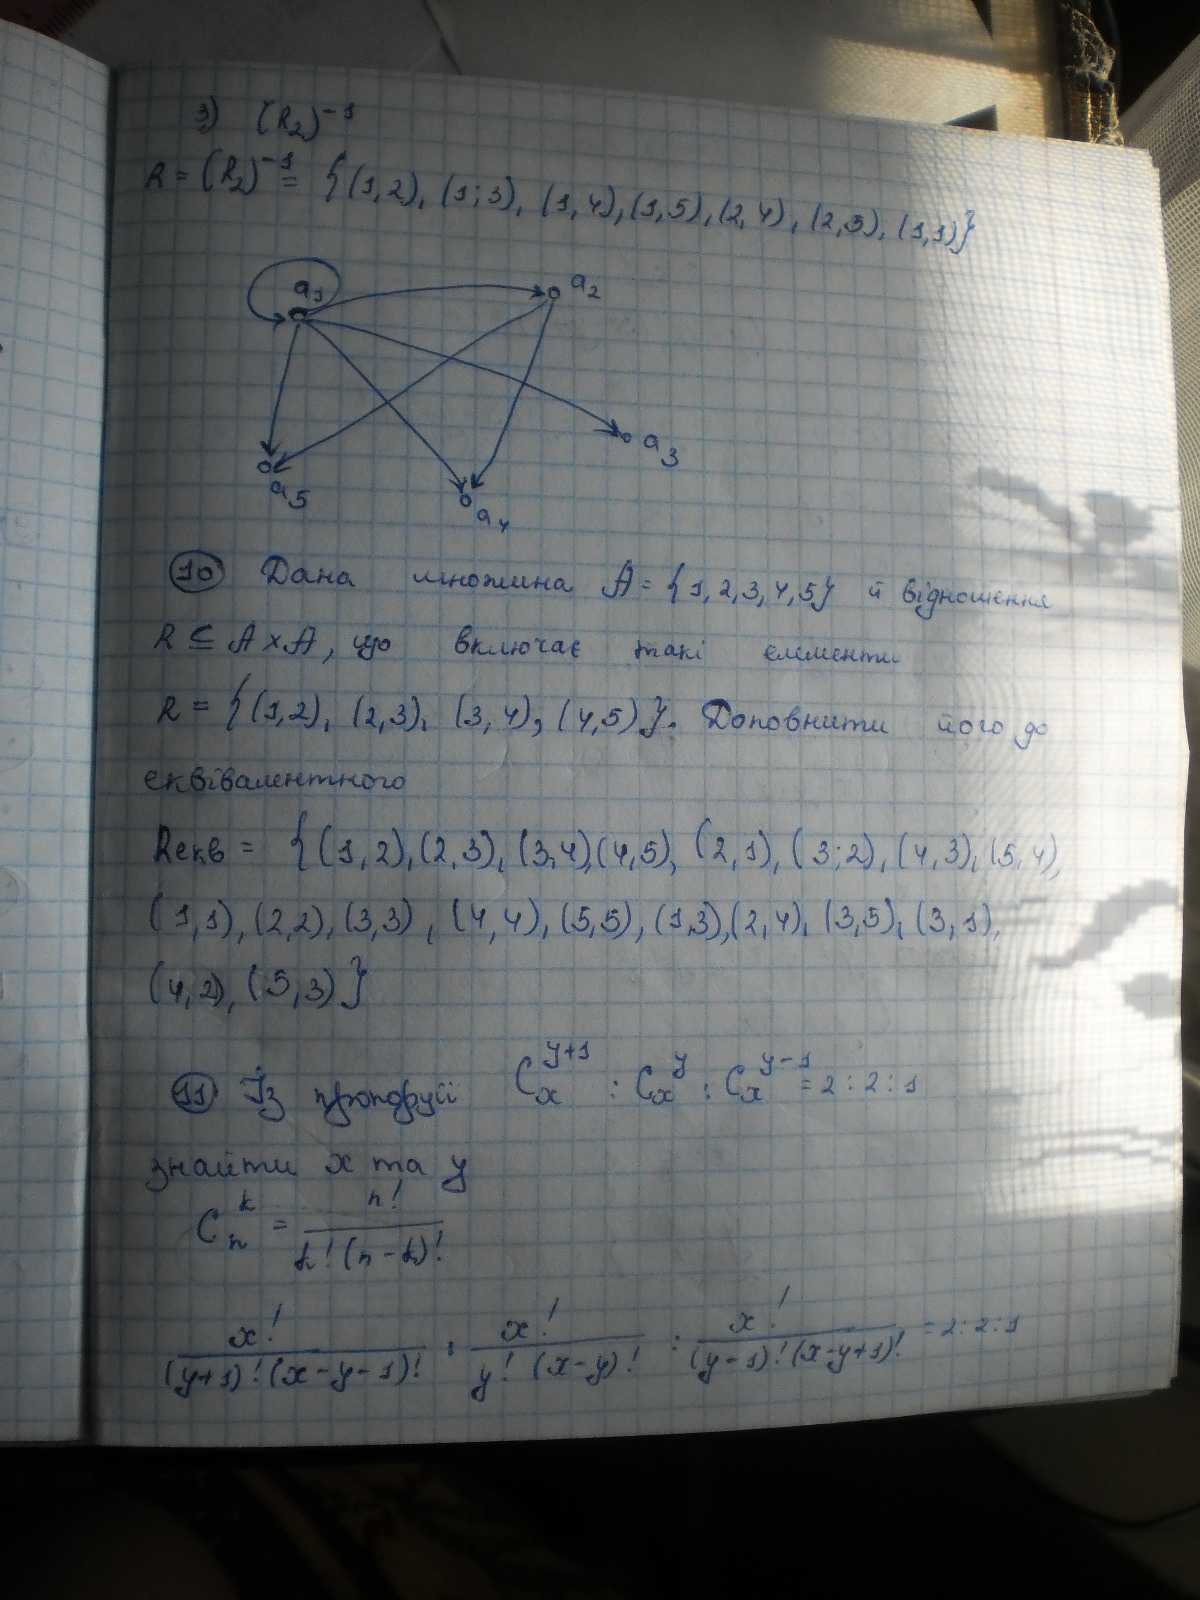 3) (R₂)⁻¹
R = (R₂)⁻¹ = {(1,2), (1;3), (1,4), (1,5), (2,4), (2,5), (1,1)}
a₁ a₂
a₃
a₅
a₄
10 Дана множина A = {1,2,3,4,5} й відношення
R ⊆ A×A, що включає такі елементи
R = {(1,2), (2,3), (3,4), (4,5)}. Доповнити його до
еквівалентного
Rекв = {(1,2), (2,3), (3,4), (4,5), (2,1), (3;2), (4,3), (5,4),
(1,1), (2,2), (3,3), (4,4), (5,5), (1,3), (2,4), (3,5), (3,1),
(4,2), (5,3)}
11 Із пропорції Cₓ^(y+1) : Cₓ^y : Cₓ^(y-1) = 2 : 2 : 1
знайти x та y
Cₙ^k = n! / k!(n-k)!
x! / (y+1)!(x-y-1)! : x! / y!(x-y)! : x! / (y-1)!(x-y+1)! = 2:2:1